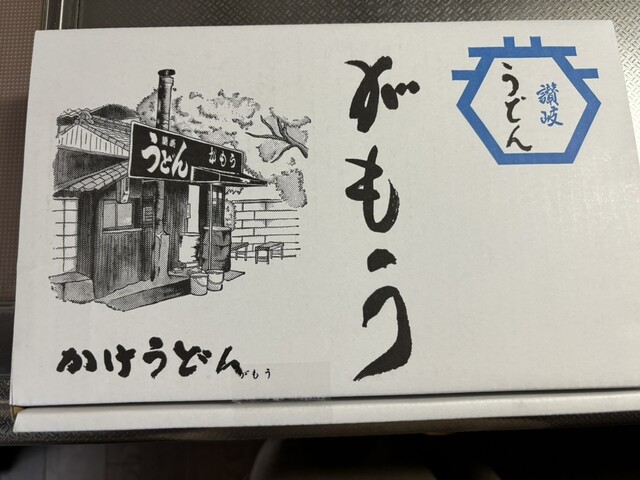 がもう
讃岐
うどん
讃岐
うどん
がもう
かけうどん
がもう